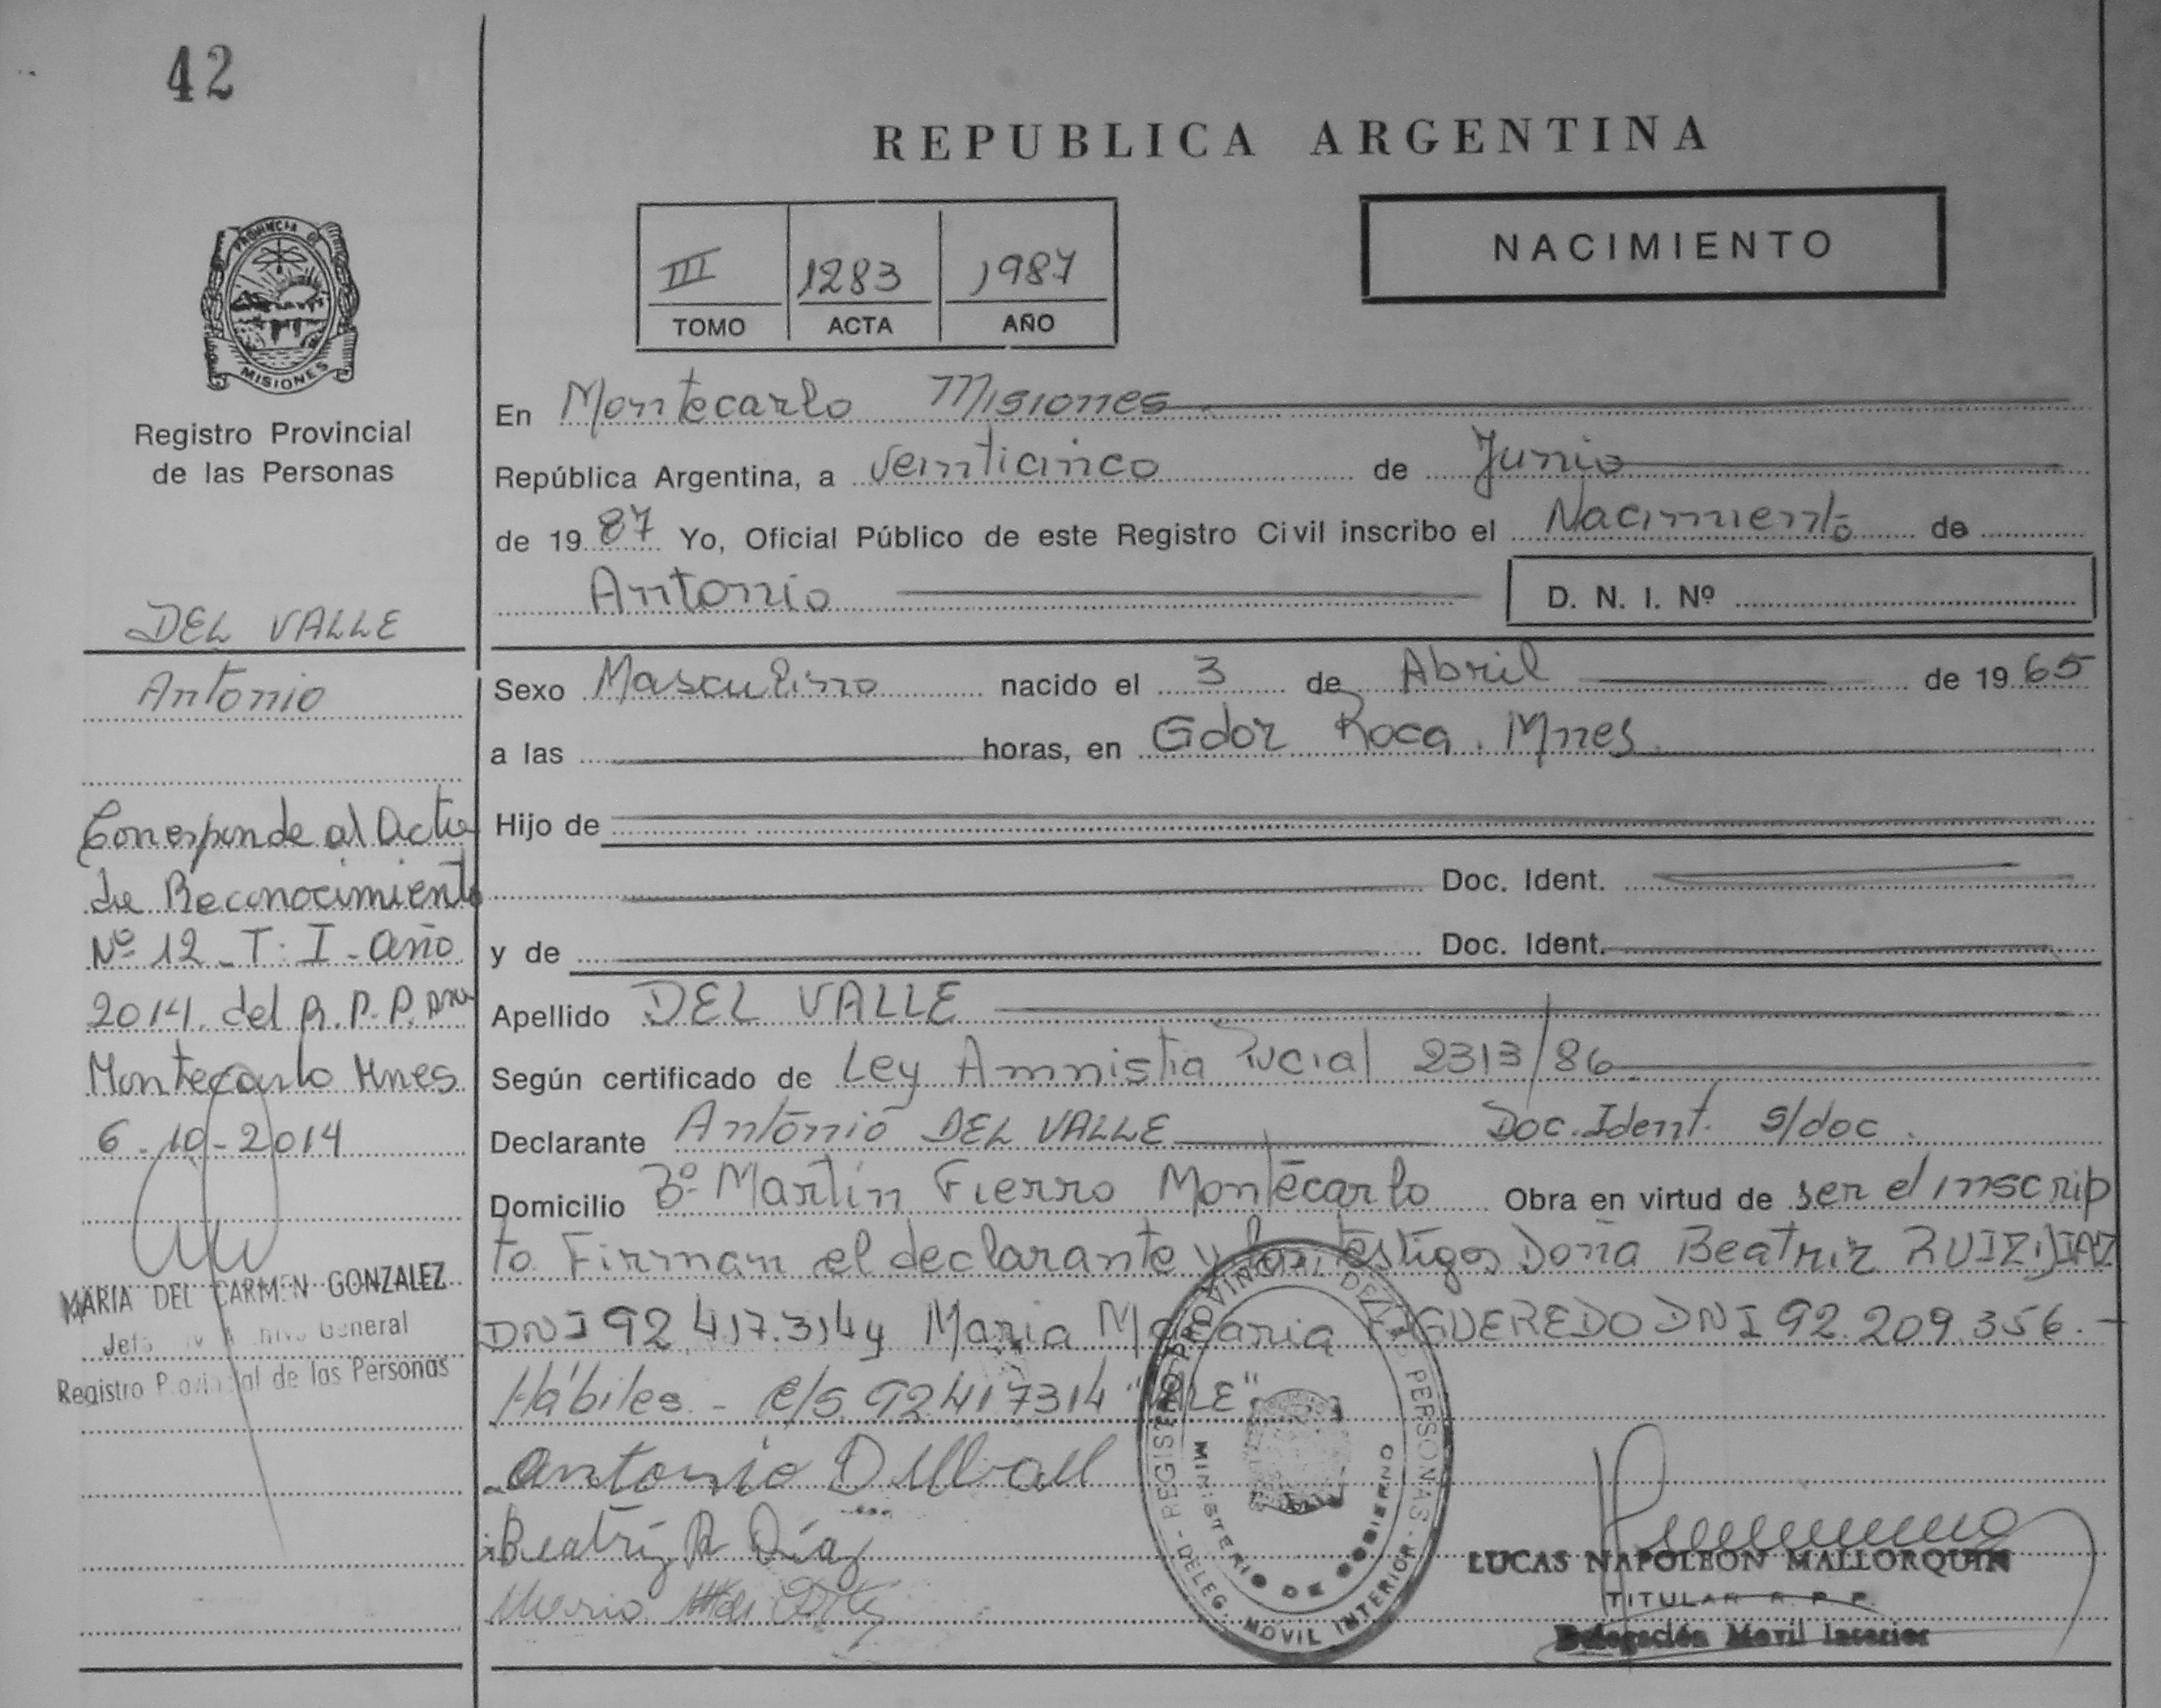 42
REPUBLICA ARGENTINA
III 1283 1987
TOMO ACTA AÑO
NACIMIENTO
PROVINCIA DE
MISIONES
Registro Provincial
de las Personas
DEL VALLE
Antonio
Corresponde al Acta
de Reconocimiento
Nº 12 - T: I - año
2014. del R. P. P.
Montecarlo Mnes
6-10-2014
MARIA DEL CARMEN GONZALEZ
General
Registro Provincial de las Personas
En Montecarlo Misiones
República Argentina, a veinticinco de Junio
de 1987 Yo, Oficial Público de este Registro Civil inscribo el Nacimiento de
Antonio
D. N. I. Nº
Sexo Masculino nacido el 3 de Abril de 1965
a las horas, en Gdor Roca. Mnes.
Hijo de
Doc. Ident.
y de Doc. Ident.
Apellido DEL VALLE
Según certificado de Ley Amnistia Pucial 2313/86
Declarante Antonio DEL VALLE Doc. Ident. s/doc.
Domicilio Bº Martín Fierro Montecarlo Obra en virtud de ser el inscrip
to. Firman el declarante y los testigos Doña Beatriz RUIZ DIAZ
DNI 92.417.314 y Maria Macaria FIGUEREDO DNI 92.209.356.-
Hábiles - e/s. 92417314 "VALE"
Antonio Dellvall
Beatriz R Díaz
Maria
REGISTRO PROVINCIAL DE LAS PERSONAS - DELEG. MOVIL INTERIOR -
MINISTERIO DE GOBIERNO
LUCAS NAPOLEON MALLORQUIN
TITULAR R. P. P.
Delegación Movil Interior